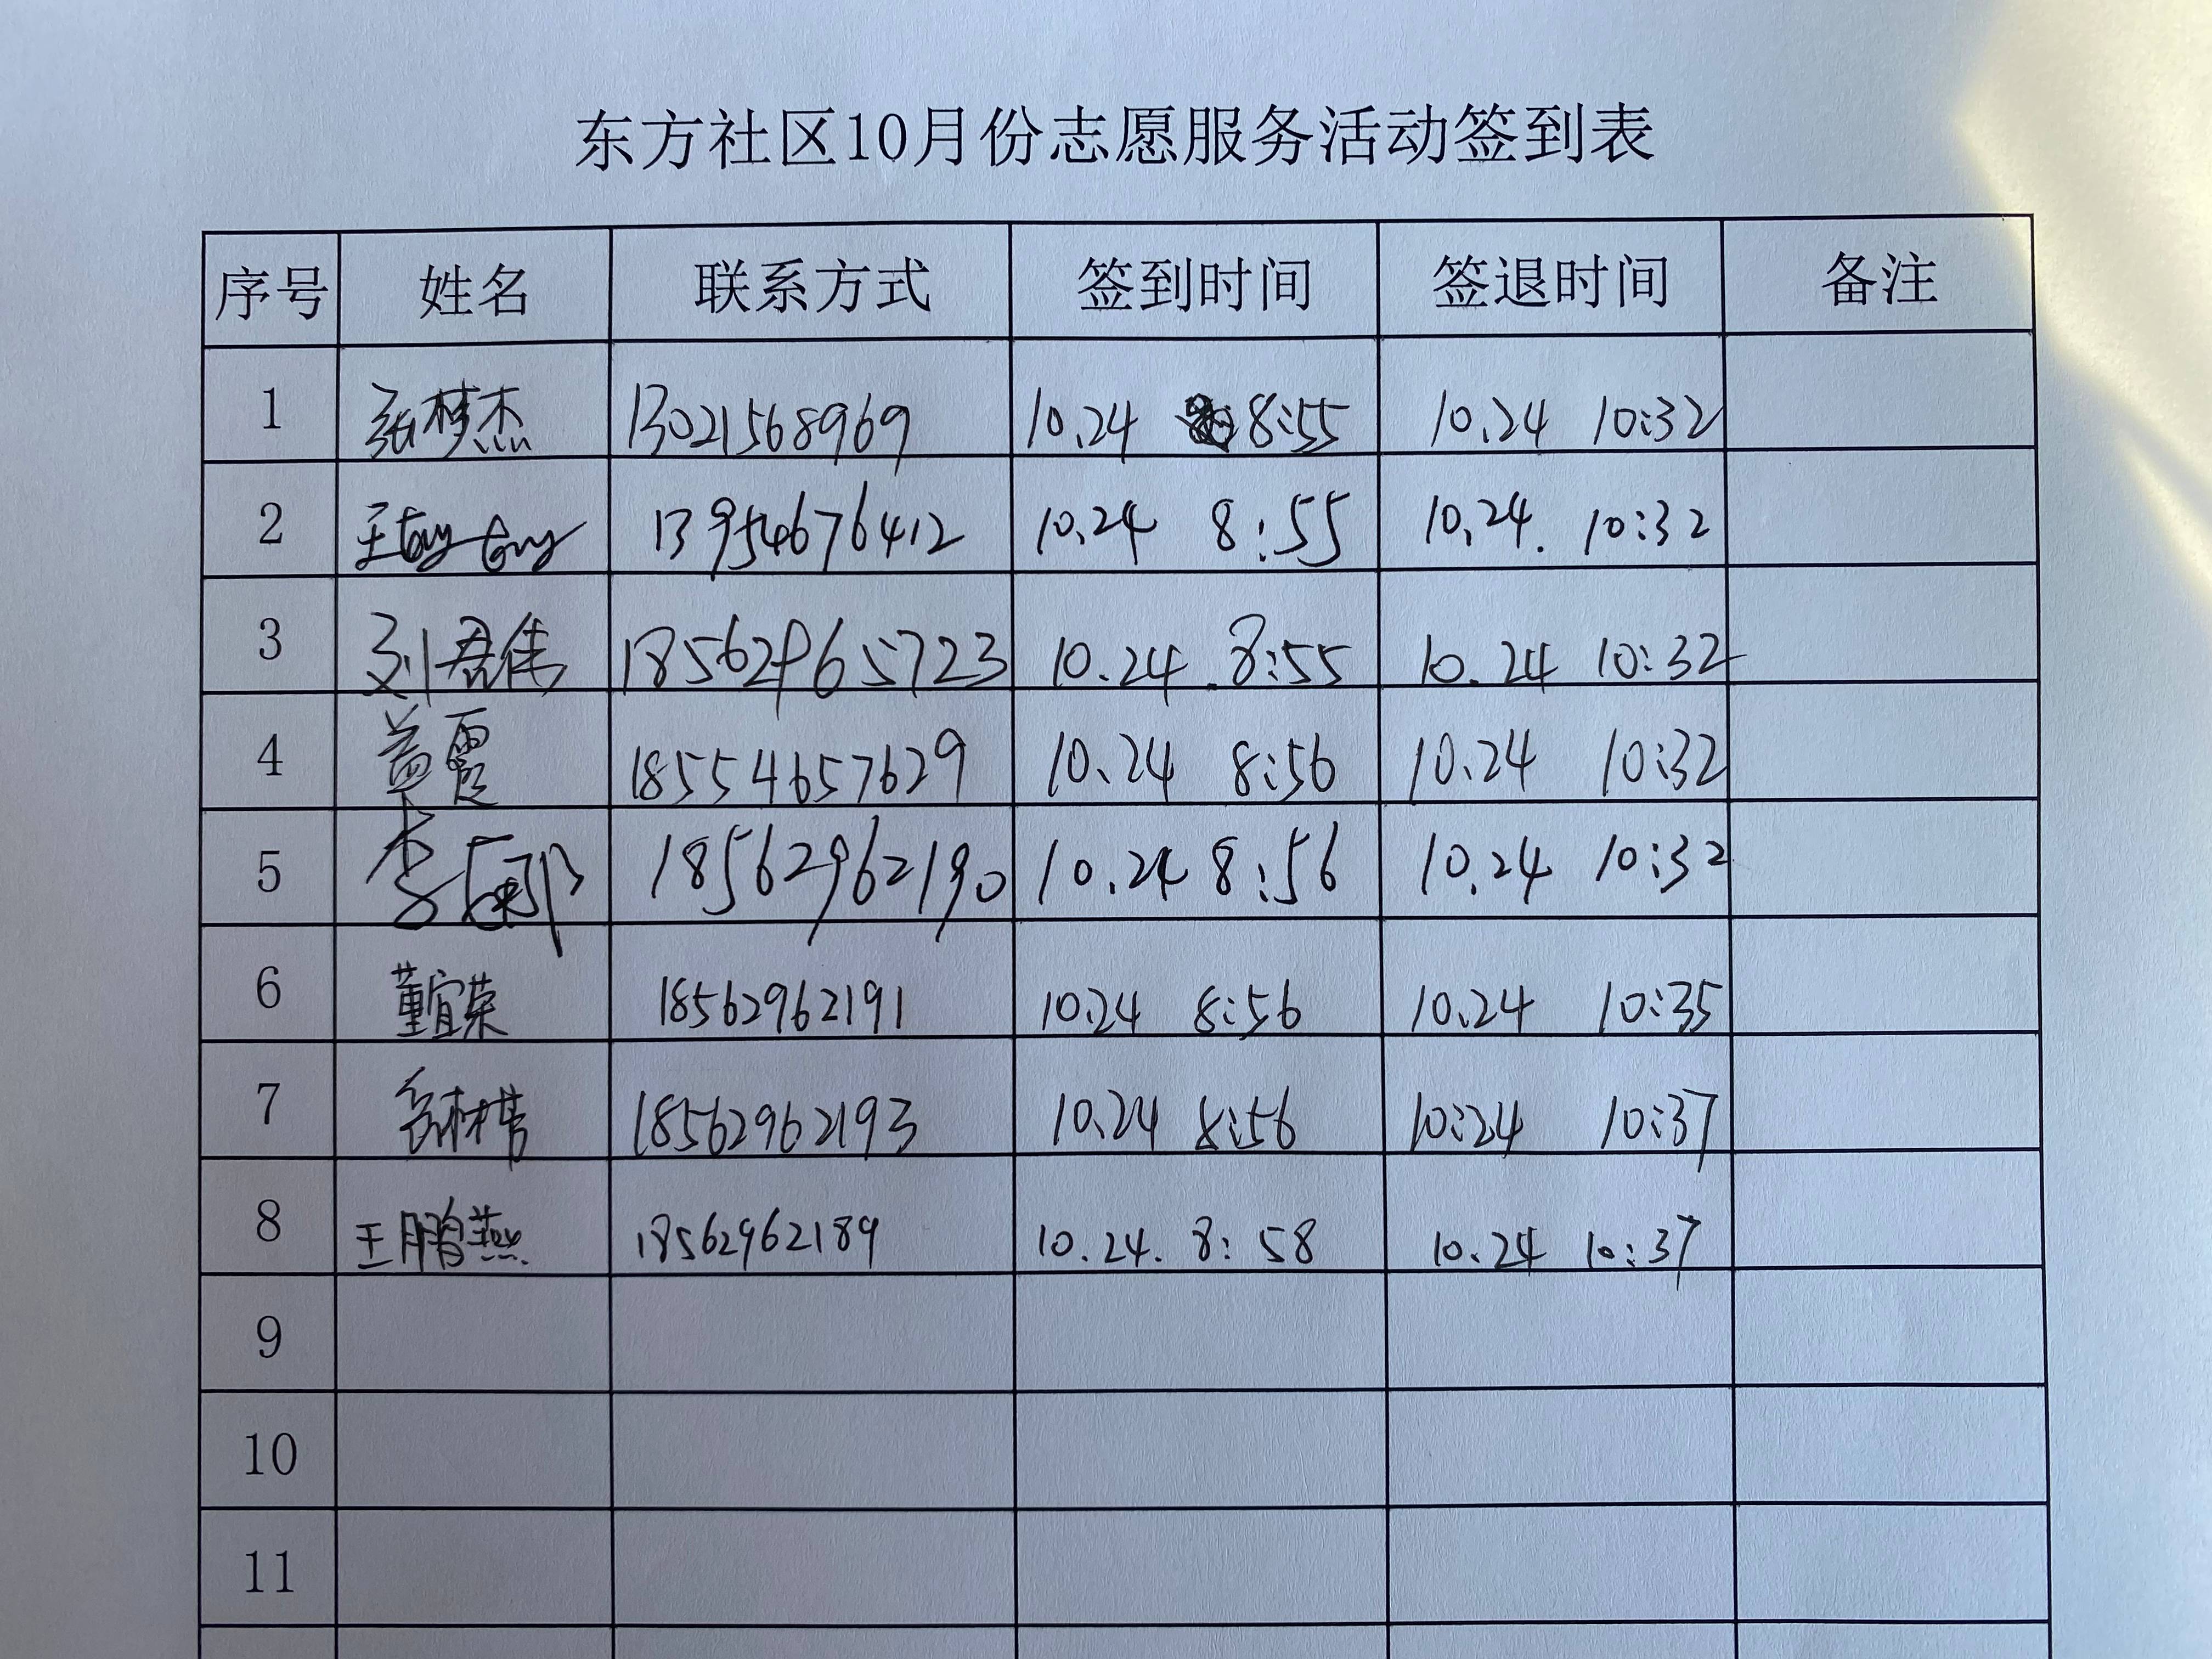 东方社区10月份志愿服务活动签到表
序号 姓名 联系方式 签到时间 签退时间 备注
1 张梦杰 13021568969 10.24 8:55 10.24 10:32
2 王 13954676412 10.24 8:55 10.24. 10:32
3 刘君伟 18562965723 10.24 8:55 10.24 10:32
4 盖霞 18554657629 10.24 8:56 10.24 10:32
5 李 娜 18562962190 10.24 8:56 10.24 10:32
6 董宜荣 18562962191 10.24 8:56 10.24 10:35
7 18562962193 10.24 8:56 10:24 10:37
8 王鹏燕 18562962189 10.24. 8:58 10.24 10:37
9
10
11